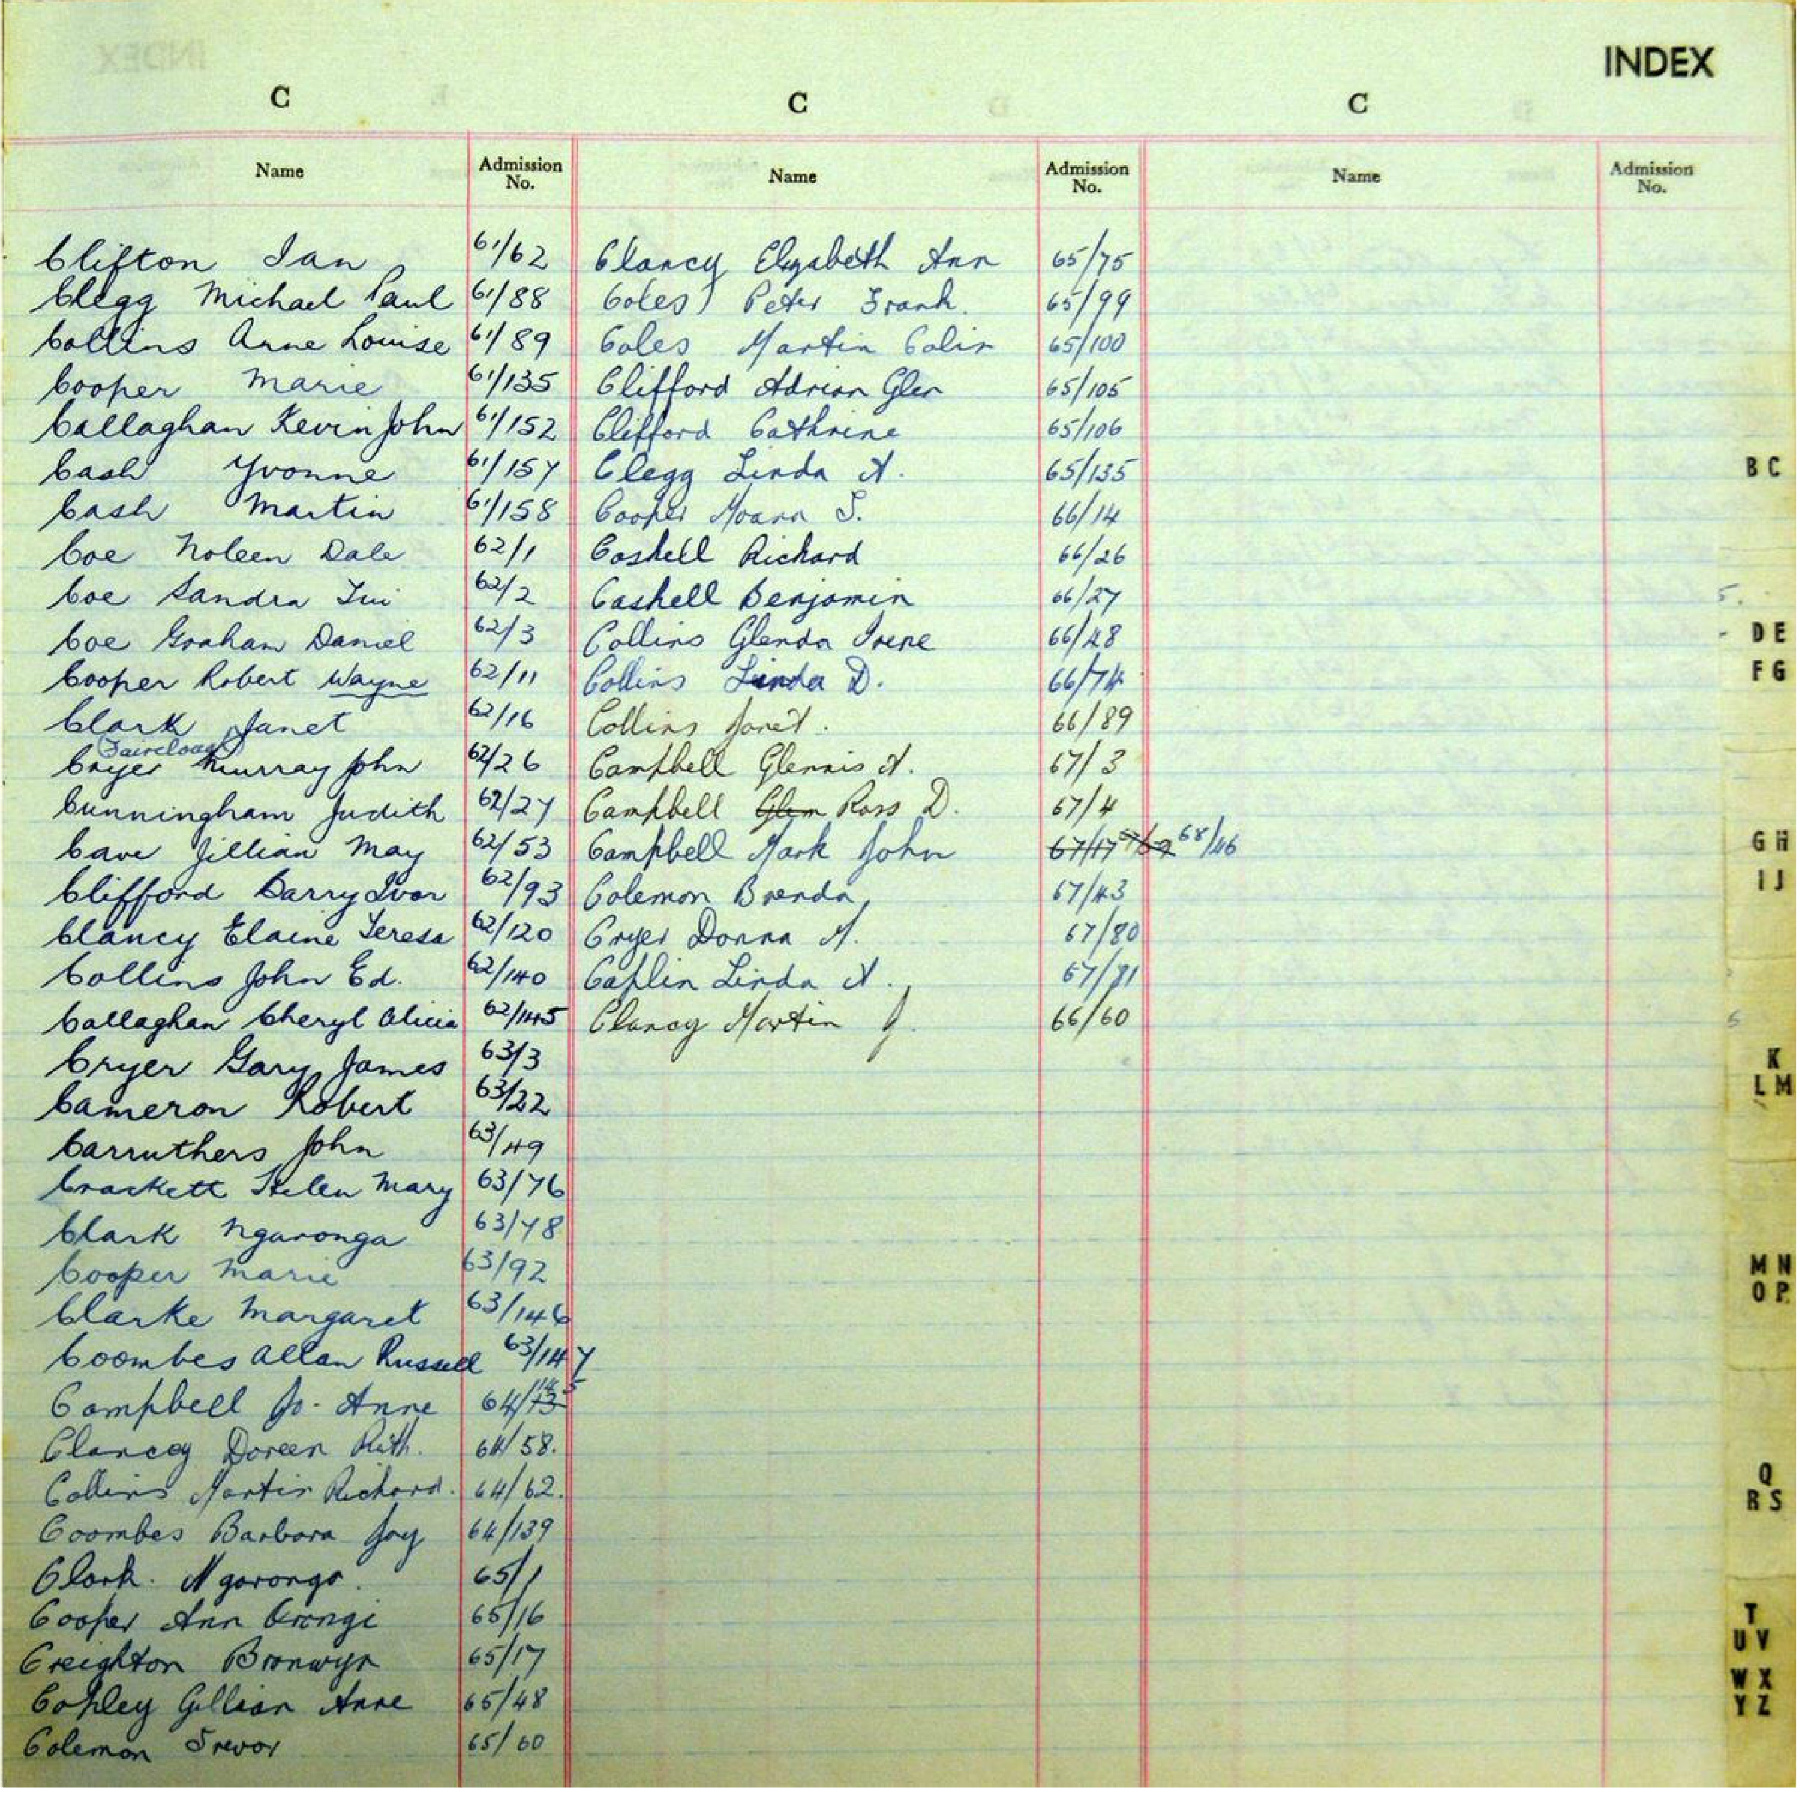 INDEX
C C C
Name Admission No. Name Admission No. Name Admission No.
Clifton Ian 61/62 Clancy Elizabeth Ann 65/75
Clegg Michael Paul 61/88 Coles Peter Frank. 65/99
Collins Anne Louise 61/89 Coles Martin Colin 65/100
Cooper Marie 61/135 Clifford Adrian Glen 65/105
Callaghan Kevin John 61/152 Clifford Cathrine 65/106
Cash Yvonne 61/157 Clegg Linda A. 65/135
Cash Martin 61/158 Cooper Moana S. 66/14
Coe Noleen Dale 62/1 Cashell Richard 66/26
Coe Sandra Tui 62/2 Cashell Benjamin 66/27
Coe Graham Daniel 62/3 Collins Glenda Irene 66/48
Cooper Robert Wayne 62/11 Collins Linda D. 66/74
Clark Janet 62/16 Collins Janet. 66/89
(Fairclough)
Cryer Murray John 62/26 Campbell Glennis A. 67/3
Cunningham Judith 62/27 Campbell Glen Ross D. 67/4
Cave Jillian May 62/53 Campbell Mark John 67/17 68/46
Clifford Barry Ivor 62/93 Coleman Brenda 67/43
Clancy Elaine Teresa 62/120 Cryer Donna M. 67/80
Collins John Ed. 62/140 Caplin Linda A. 67/81
Callaghan Cheryl Alicia 62/145 Clancy Martin J. 66/60
Cryer Gary James 63/3
Cameron Robert 63/22
Carruthers John 63/49
Crackett Helen Mary 63/76
Clark Ngaronga 63/78
Cooper Marie 63/92
Clarke Margaret 63/146
Coombes Allan Russell 63/147
Campbell Jo-Anne 64/
Clancy Doreen Ruth. 64/58.
Collins Martin Richard. 64/62.
Coombes Barbara Joy 64/139
Clark. Ngaronga. 65/1
Cooper Ann 65/16
Creighton Bronwyn 65/17
Copley Gillian Anne 65/48
Coleman Trevor 65/60
B C
D E
F G
G H
I J
K
L M
M N
O P
Q
R S
T
U V
W X
Y Z